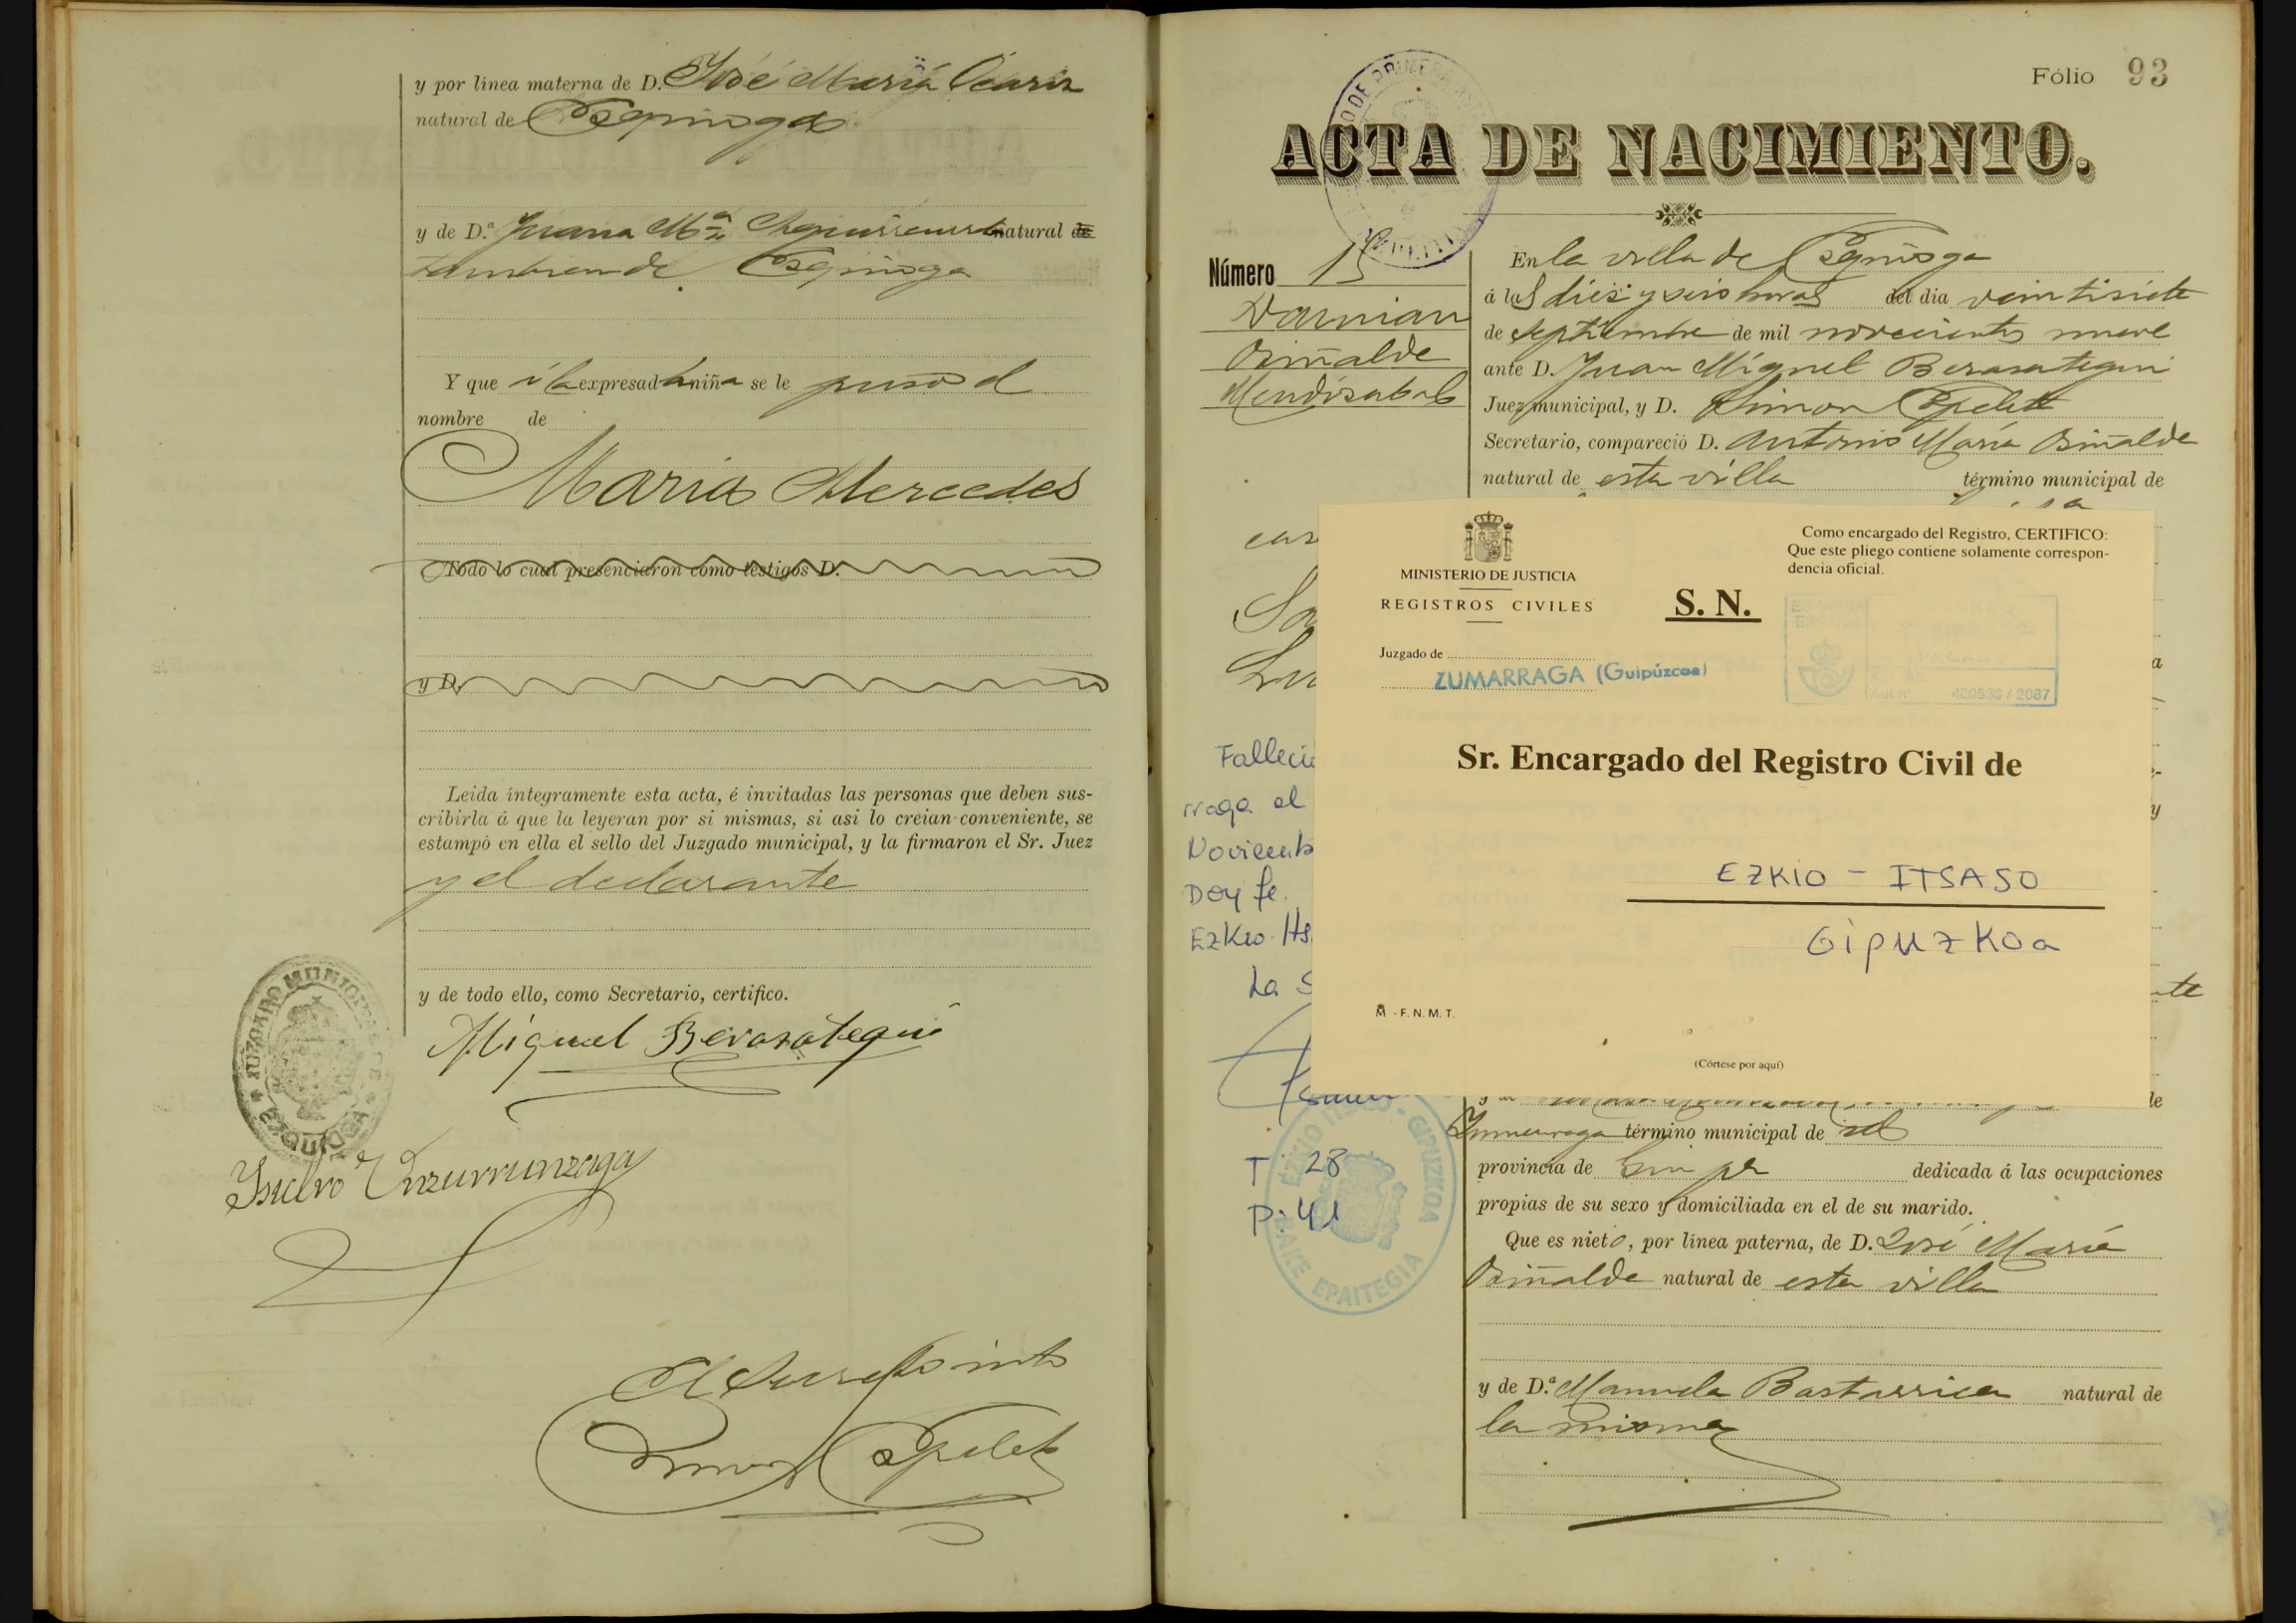 y por línea materna de D. José María Ocariz
natural de Ezquioga
y de D.ª Juana M.ª natural de
tambien de Ezquioga
Y que á la expresada niña se le puso el
nombre de
Maria Mercedes
Todo lo cual presenciaron como testigos D.
y D.
Leida íntegramente esta acta, é invitadas las personas que deben sus-
cribirla á que la leyeran por si mismas, si asi lo creian conveniente, se
estampó en ella el sello del Juzgado municipal, y la firmaron el Sr. Juez
y el declarante
y de todo ello, como Secretario, certifico.
Miguel Berasategui
JUZGADO MUNICIPAL DE
Isidro Unzurrunzaga
El Secretario
Simon Ezpeleta
Fólio 93
ACTA DE NACIMIENTO.
Número 15
Damian
Osiñalde
Mendizabal
En la villa de Ezquioga
á las diez y seis horas del dia veintisiete
de septiembre de mil novecientos nueve
ante D. Juan Miguel Berasategui
Juez municipal, y D. Simon Ezpeleta
Secretario, compareció D. Antonio María Osiñalde
natural de esta villa término municipal de
MINISTERIO DE JUSTICIA
REGISTROS CIVILES
S. N.
Como encargado del Registro, CERTIFICO:
Que este pliego contiene solamente correspon-
dencia oficial.
Juzgado de
ZUMARRAGA (Guipúzcoa)
480536 / 2087
Sr. Encargado del Registro Civil de
EZKIO - ITSASO
Gipuzkoa
F.N.M.T.
(Córtese por aquí)
Falleció
rraga el
Novicento
Doy fe.
Ezkio Its.
La S
T: 28
P: 41
EZKIO ITSASO - GIPUZKOA
BAKE EPAITEGIA
Zumarraga término municipal de id
provincia de Guipa dedicada á las ocupaciones
propias de su sexo y domiciliada en el de su marido.
Que es nieto, por línea paterna, de D. José María
Osiñalde natural de esta villa
y de D.ª Manuela Bastarrica natural de
la misma